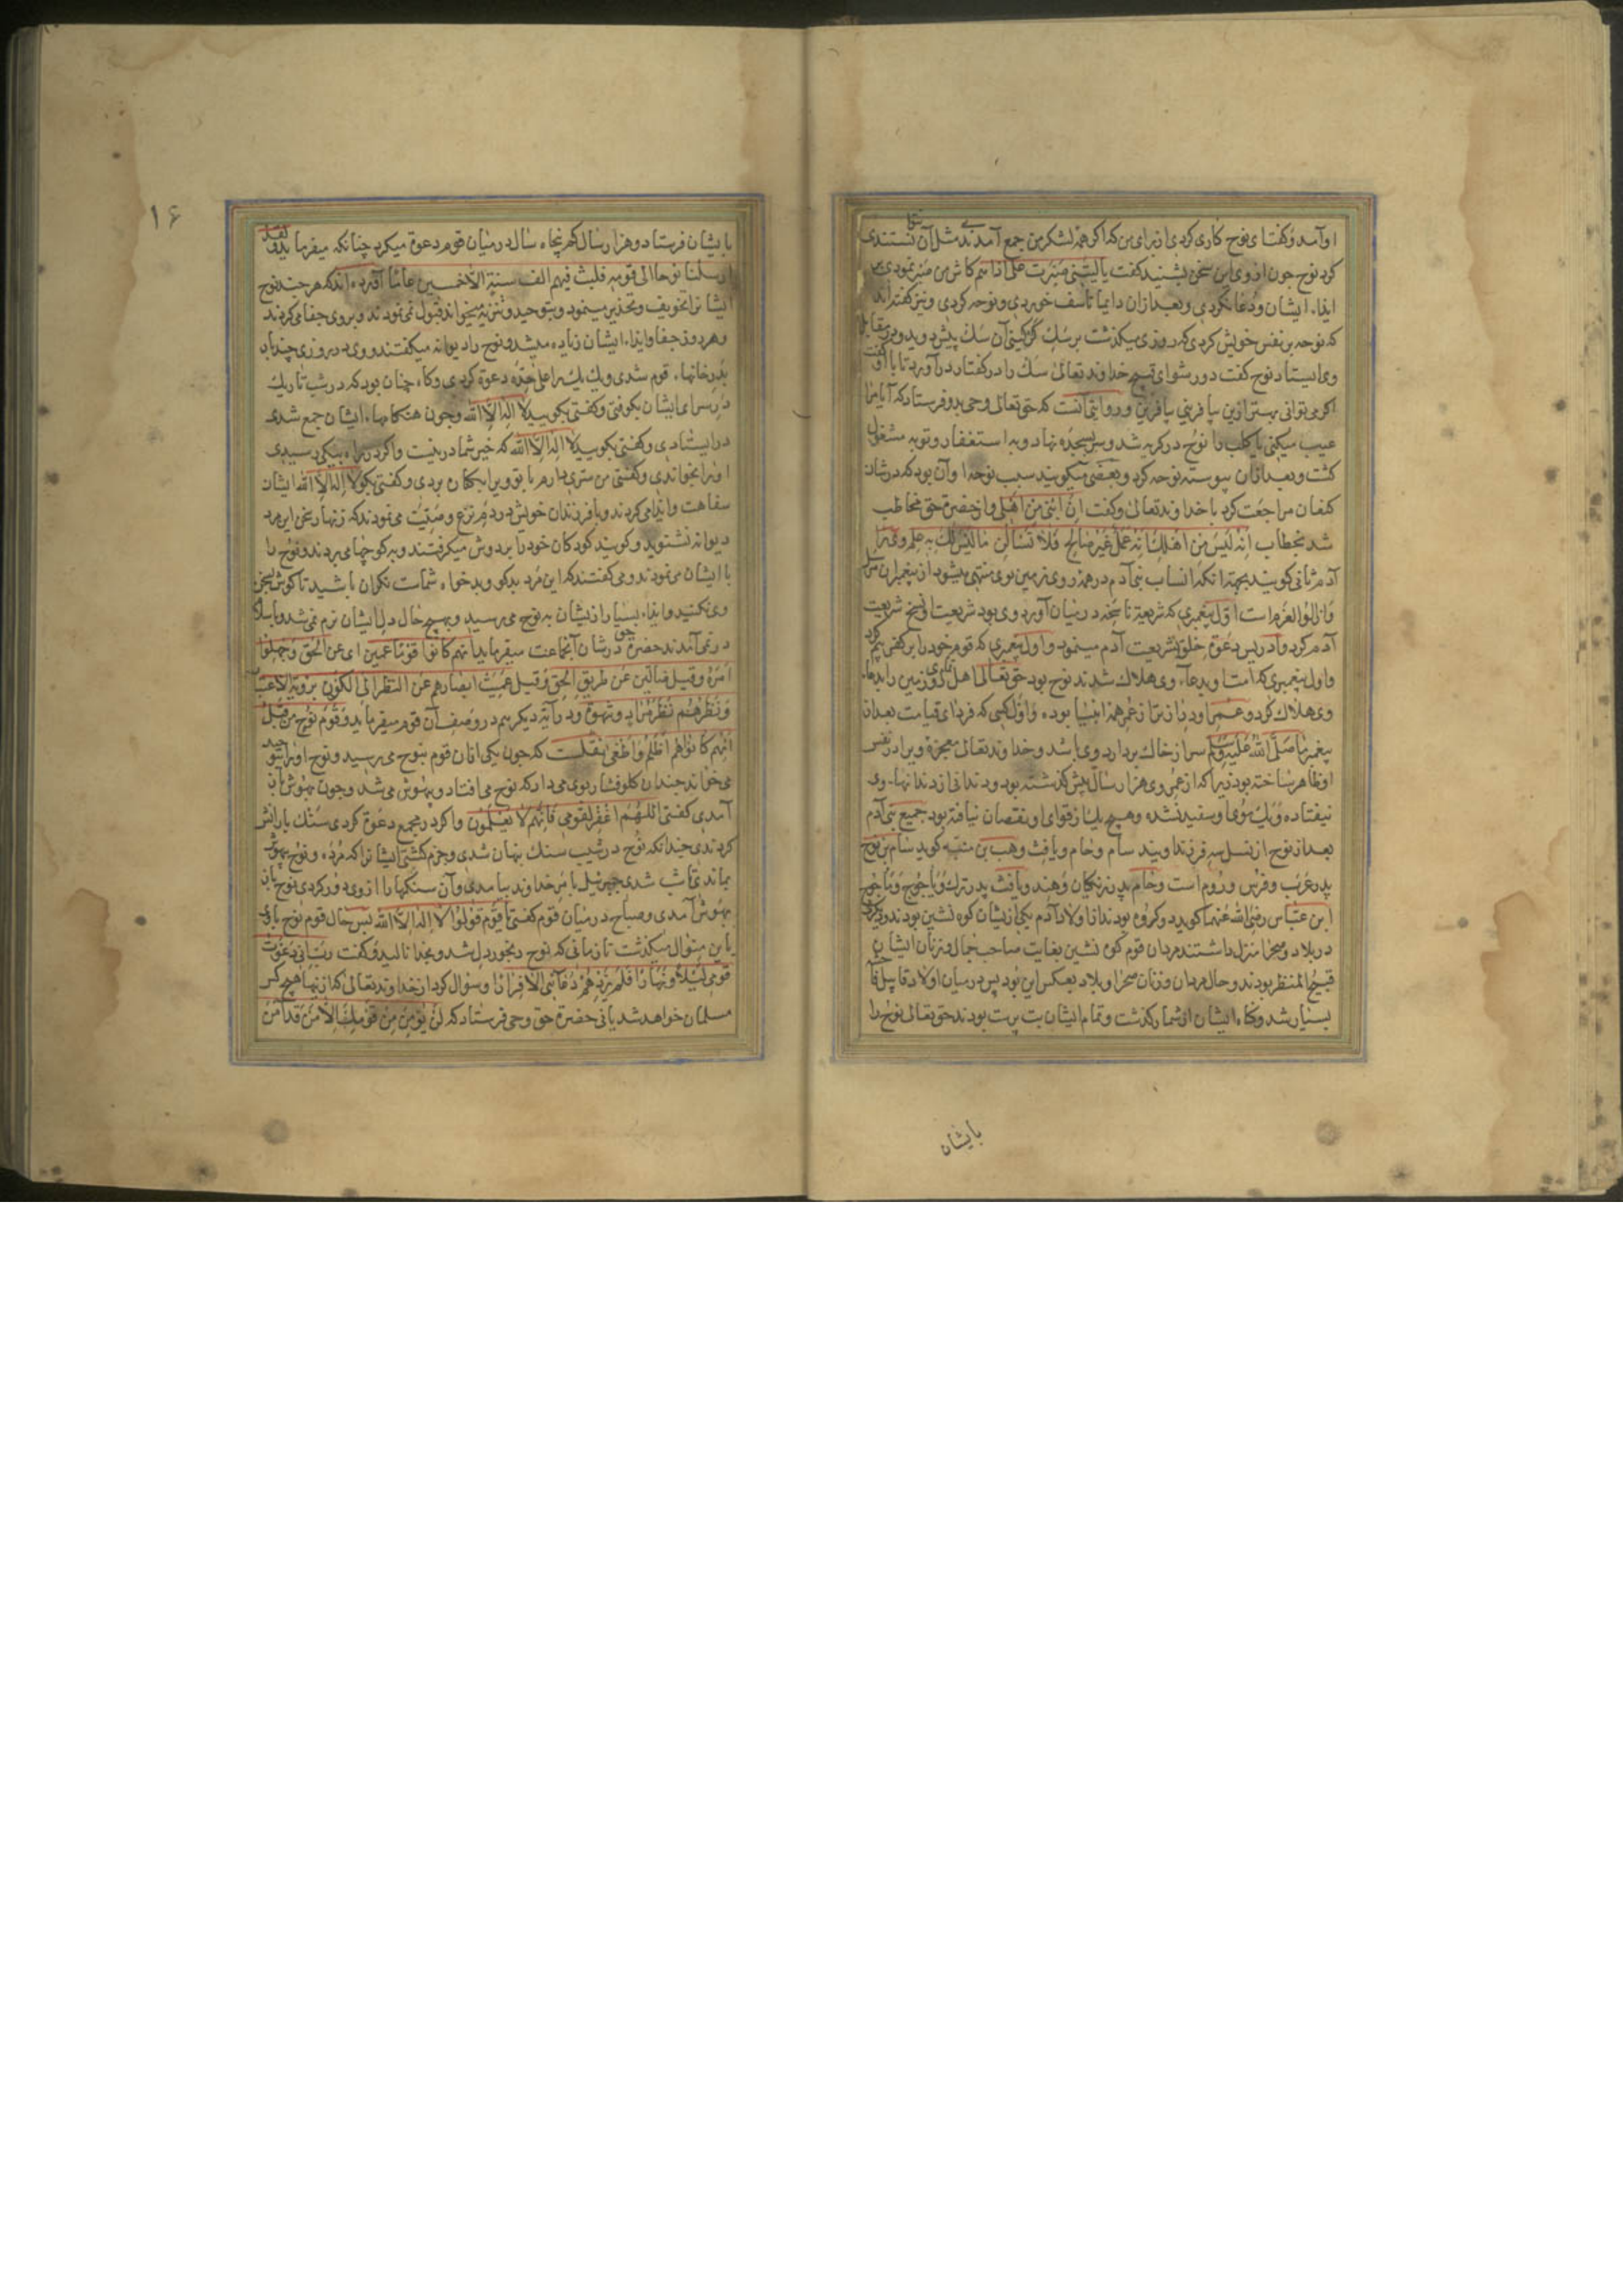 او آمد و کفت ای نوح کاری کردی از برای من که اکر همهٔ لشکر من جمع آمدندی مثل آن نتوانستندی
کرد نوح چون از وی این سخن بشنید کفت یا لیتنی صبرت علی اذاهم کاش من صبر نمودی بر
ایذاء ایشان و دعا نکردی و بعد از آن دایما تاسف خوردی و نوحه کردی و نیز کفته‌اند
که نوحه بر نفس خویش کردی که روزی میکذشت بر سک کرکین آن سک پیش دوید و در مقابل
وی ایستاد نوح کفت دور شو ای قبیح خداوند تعالی سک را در کفتار در آورد تا با او کفت
اکر می‌توانی بهتر ازین بیافرینی بیافرین و روایتی آنست که حق تعالی وحی بدو فرستاد که آیا مرا
عیب میکنی یا کلب را نوح در کریه شد و سر بسجده نهاد و به استغفار و توبه مشغول
کشت و بعد از آن پیوسته نوحه کرد و بعضی میکویند سبب نوحهٔ او آن بود که در شان
کنعان مراجعت کرد با خداوند تعالی و کفت ان ابنی من اهلی و از حضرة حق مخاطب
شد بخطاب انه لیس من اهلک انه عمل غیر صالح فلا تسالن ما لیس لک به علم و وی را
آدم ثانی کویند بجهة آنکه انساب بنی آدم در همه روی زمین بوی منتهی میشود از پیغمبران مرسل
و از الوالعزم است اول پیغمبری که شریعة ناسخه در میان آورد وی بود شریعت او نسخ شریعت
آدم کرد و ادریس دعوة خلق بشریعت آدم مینمود و اول پیغمبری که قوم خود را بر کفر بیم کرد
و اول پیغمبری که امت او بدعاء وی هلاک شدند نوح بود حق تعالی اهل تمامی روی زمین را بدعاء
وی هلاک کرد و عمر او درازتر از عمر همهٔ انبیا بوده و اول کسی که فردای قیامت بعد از
پیغمبر ما صلی الله علیه وسلم سر از خاک بردارد وی باشد و خداوند تعالی معجزهٔ ویرا در نفس
او ظاهر ساخته بود زیرا که از عمر وی هزار سال پیش کذشته بود و دندانی از دندانهاء وی
نیفتاده و یک موی او سفید نشده و هیچ یک از قوای او نقصان نیافته بود جمیع بنی آدم
بعد از نوح از نسل سه فرزند اویند سام و حام و یافث وهب بن منبه کوید سام بن نوح
پدر عرب و فرس و روم است و حام پدر زنکیان و هند و یافث پدر ترک و یاجوج و ماجوج
ابن عباس رضی الله عنهما کوید دو کروه بودند از اولاد آدم یکی از یشان کوه نشین بودند و دیکری
در بلاد و صحرا منزل داشتند مردان قوم کوه نشین بغایت صاحب جمال و زنان ایشان
قبیح المنظر بودند و حال مردان و زنان صحرا و بلاد بعکس این بود پس در میان اولاد قابیل فاحشه
بسیار شد و کناه ایشان از شمار کذشت و تمام ایشان بت پرست بودند حق تعالی نوح را
بایشان
۱۶
بایشان فرستاد و هزار سال کم پنجاه سال در میان قوم دعوة میکرد چنانکه میفرماید و لقد
ارسلنا نوحا الی قومه فلبث فیهم الف سنة الا خمسین عاما آورده‌اند که هر چند نوح
ایشان را تخویف و تحذیر مینمود و بتوحید و تنزیه میخواند قبول نمی‌نمودند و بر وی جفا می‌کردند
و هر روز جفا و ایذاء ایشان زیاده میشد و نوح را دیوانه میکفتند و وی در روزی چند بار
بدر خانهاء قوم شدی و یک یک را علی حده دعوة کردی و کاه چنان بود که در شب تاریک
در سرای ایشان بکوفتی و کفتی بکویید لا اله الا الله و چون هنکامهاء ایشان جمع شدی
در ایستادی و کفتی بکویید لا اله الا الله که خیر شما درینست و اکر در راه بیکی رسیدی
او را بخواندی و کفتی من سری دارم با تو ویرا بکنار بردی و کفتی بکو لا اله الا الله ایشان
سفاهت و ایذا می‌کردند و با فرزندان خویش در دم نزع وصیت می‌نمودند که زنهار سخن این مرد
دیوانه نشنوید و کویند کودکان خود را بر دوش میکرفتند و به کوچها می‌بردند و نوح را
با ایشان می‌نمودند و می‌کفتند که این مرد بدکو و بدخواه شماست نکران باشید تا کوش بسخن
وی نکنید و ایذاء بسیار از یشان به نوح می‌رسید و بهیچ حال دل ایشان نرم نمی‌شد و باسلام
در نمی‌آمدند حضرة حق در شان آنجماعت میفرماید انهم کانوا قوما عمین ای عن الحق و جهلوا
امره و قیل ضالین عن طریق الحق و قیل عمیت ابصارهم عن النظر الی الکون برویة الاعتبار
و نظرهم نظر مراد و شهوة و در آیة دیکر هم در وصف آن قوم میفرماید و قوم نوح من قبل
انهم کانوا هم اظلم و اطغی نقلست که چون یکی از آن قوم بنوح می‌رسید و نوح او را بتوحید
می‌خواند چندان کلو فشار بوی می‌داد که نوح می‌افتاد و بیهوش می‌شد و چون بهوش باز
آمدی کفتی اللهم اغفر لقومی فانهم لا یعلمون و اکر در مجمع دعوة کردی سنک بارانش
کردندی چندانکه نوح در شیب سنک پنهان شدی و جزم کشتی ایشان را که مرده و نوح بیهوش
بماندی تا شب شدی جبرئیل بامر خداوند بیامدی و آن سنکها را از وی دور کردی نوح باز
بهوش آمدی و صباح در میان قوم کفتی یا قوم قولوا لا اله الا الله پس حال قوم نوح با وی
باین منوال میکذشت تا زمانی که نوح رنجور دل شد و بخدا نالید و کفت رب انی دعوت
قومی لیلا و نهارا فلم یزدهم دعائی الا فرارا و سوال کرد از خداوند تعالی که از ینها هیچ کس
مسلمان خواهد شد یا نی حضرة حق وحی فرستاد که لن یومن من قومک الا من قد آمن